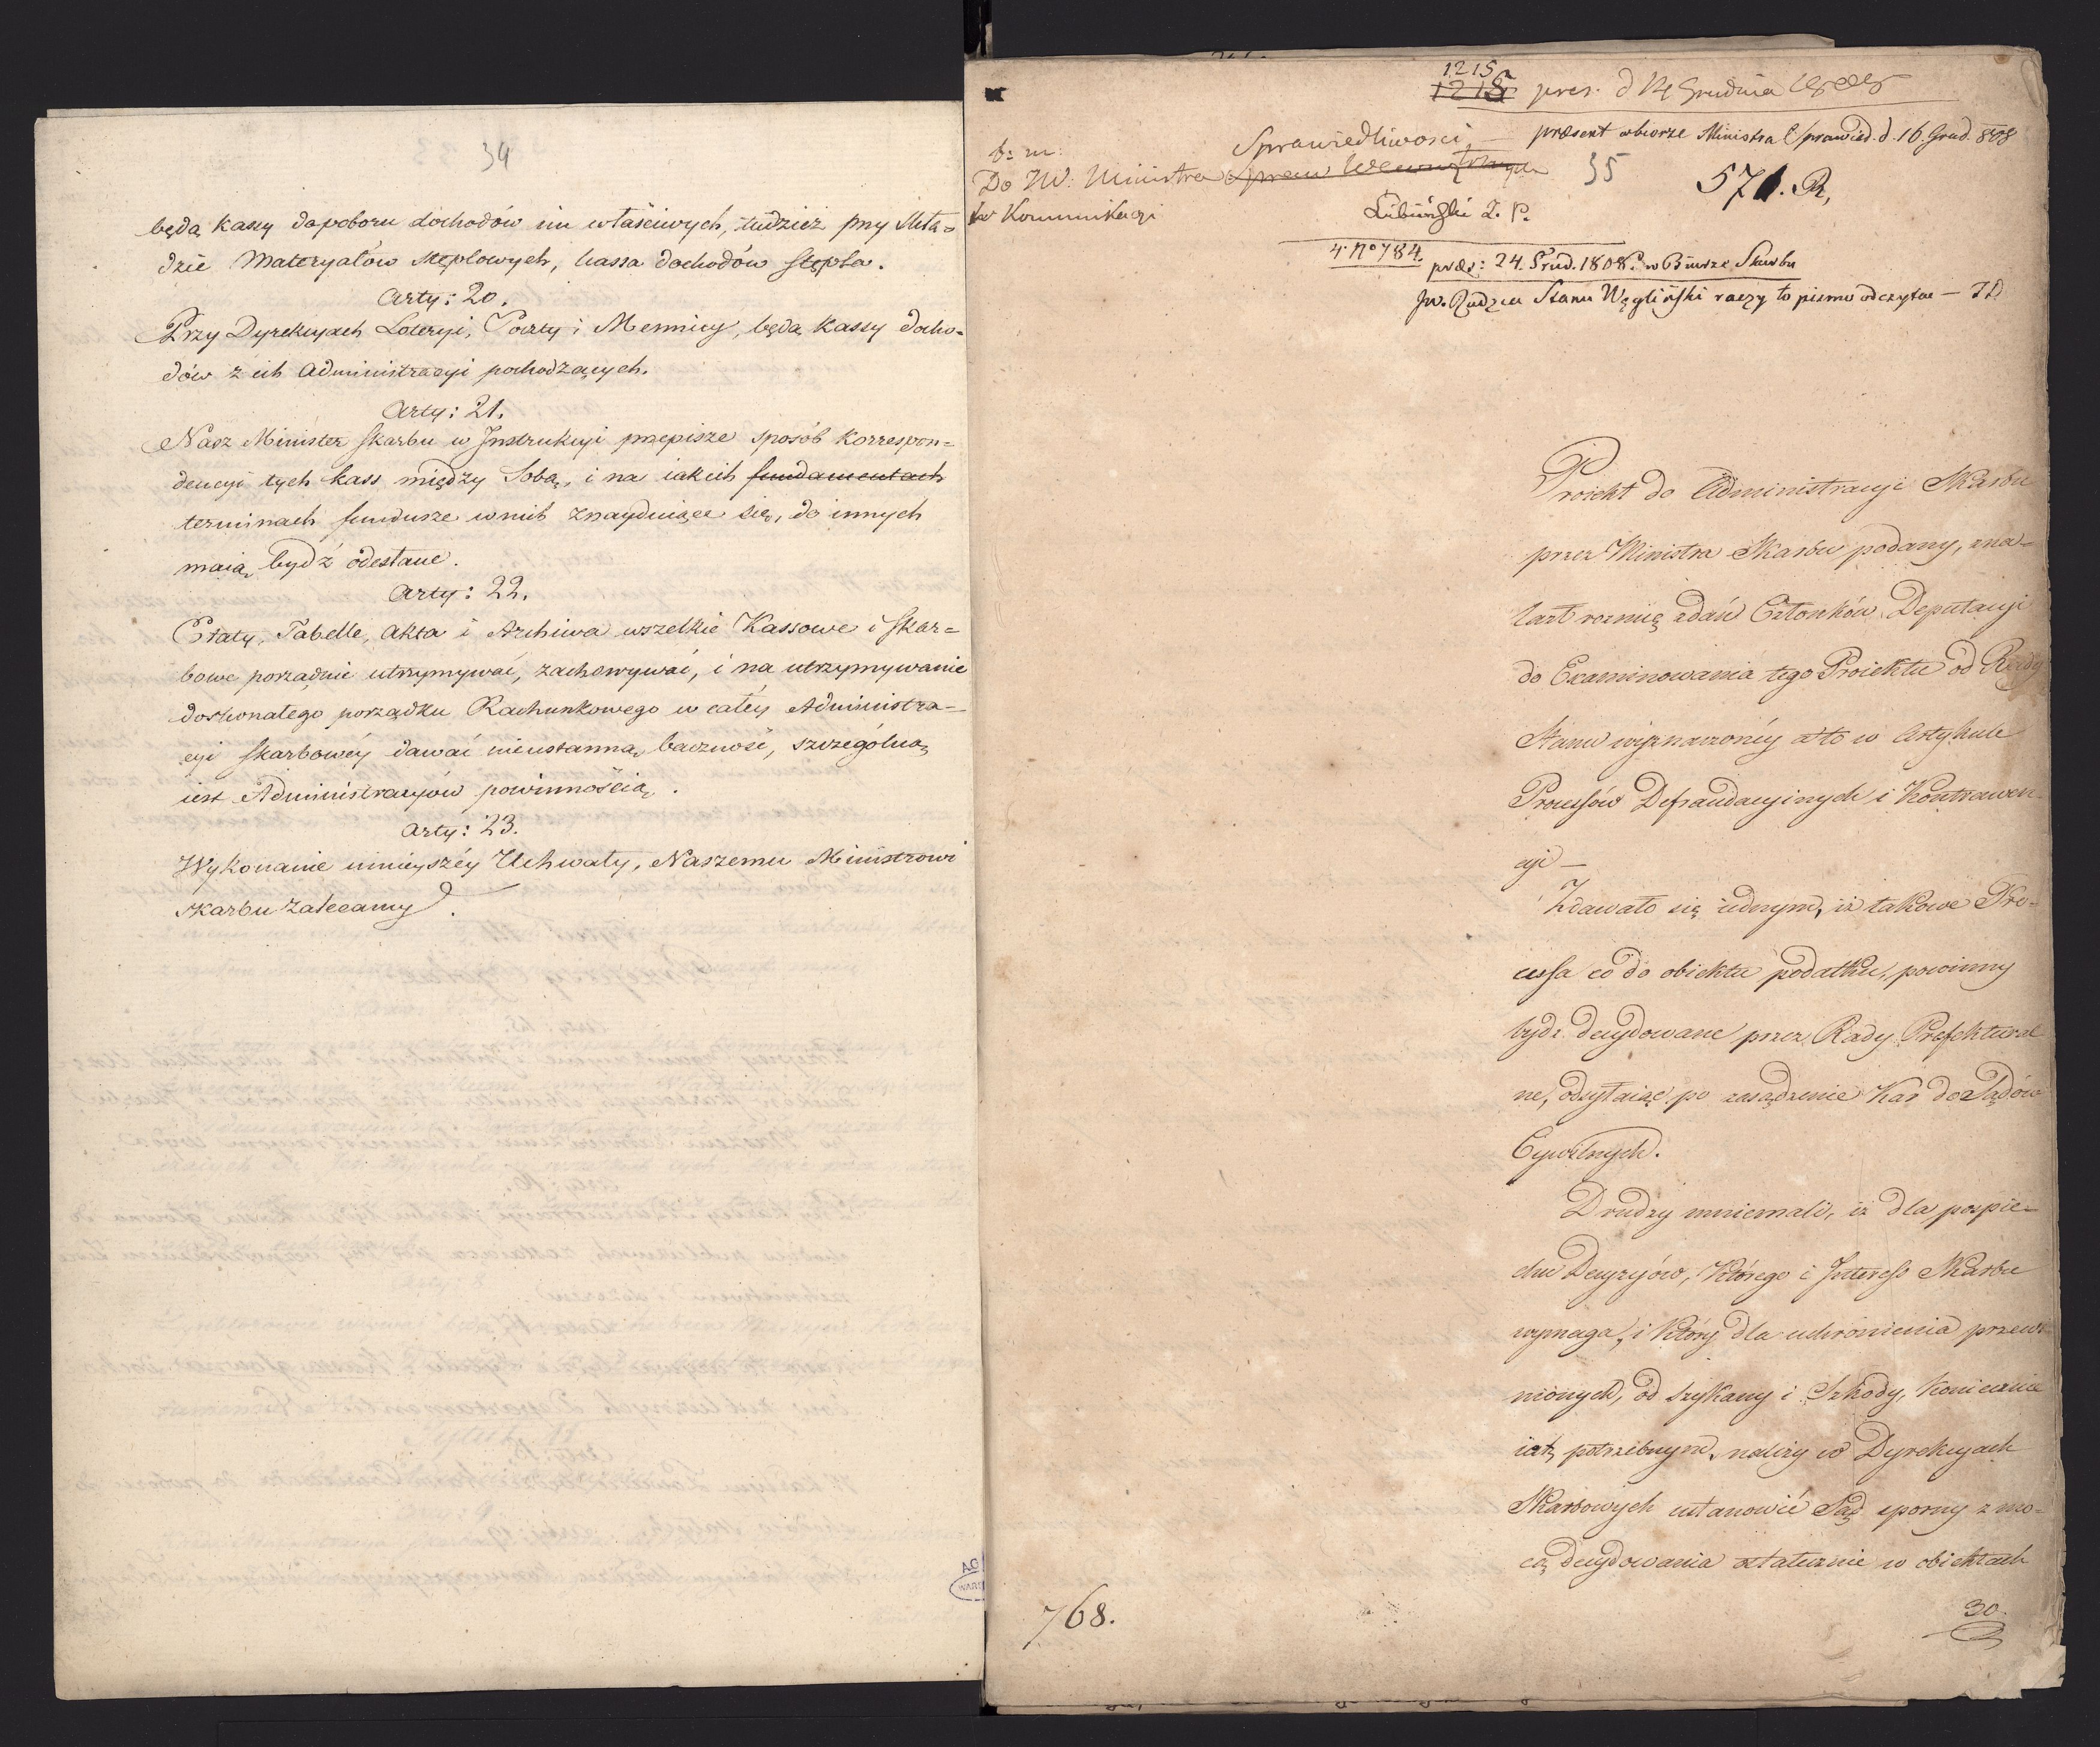 34
będą kassy do poboru dochodów im właściwych, tudzież przy Skła=
dzie Materyałów stęplowych, kassa dochodów stępla.
Arty: 20.
Przy Dyrekcyach Loteryi, Poczty i Mennicy, będą Kassy docho=
dów z ich Administracyi pochodzących.
Arty: 21.
Nasz Minister Skarbu w Instrukcyi przepisze sposób korrespon=
dencyi tych kass między Sobą, i na iakich fundamentach
terminach fundusze w nich znayduiące się, do innych
maią bydź odesłane.
Arty: 22.
Etaty, Tabelle, Akta i Archiwa wszelkie Kassowe i Skar=
bowe porządnie utrzymywać, zachowywać, i na utrzymywanie
doskonałego porządku Rachunkowego w całéy Administra=
cyi Skarbowéy dawać nieustanną baczność, szczególną
iest Administracyów powinnością.
Arty: 23.
Wykonanie ninieyszéy Uchwały, Naszemu Ministrowi
Skarbu zalecamy.
1215
1215 pres. d 14 Grudnia 1808
præsent w biorze Ministra Sprawied. d. 16. Grud. 808
Sprawiedliwosci
Do JW. Ministra Spraw Wewnętrznych
w Kommunikacyi
35
571. R,
Łubieński L. P.
4. No 784.
præs: 24. Grud. 1808. w Biurze Skarbu
Jw. Radzca Stanu Węgliński raczy to pismo odczytać —
Proiekt do Administracyi Skarbu
przez Ministra Skarbu podany, zna=
lazł roznicę zdań Członków Deputacyi
do Examinowania tego Proiektu od Rady
Stanu wyznaczonéy a to w Artykule
Processów Defraudacyinych i Kontrawen=
cyi —
Zdawało się iednym, iż takowe Pro=
cessa co do obiektu podatku, powinny
bydz decydowane przez Rady Prefektural
ne, odsyłaiąc po zasądzenie Kar do Sądów
Cywilnych.
Drudzy mniemali, iż dla pospie=
chu Decyzyów, którego i Interess Skarbu
wymaga, i który dla uchronienia przewi=
nionych, od szykany i Szkody, koniecznie
iest potrzebnym, należy w Dyrekcyach
Skarbowych ustanowić Sąd sporny z mo=
cą decydowania ostatecznie w obiektach
768.
30.